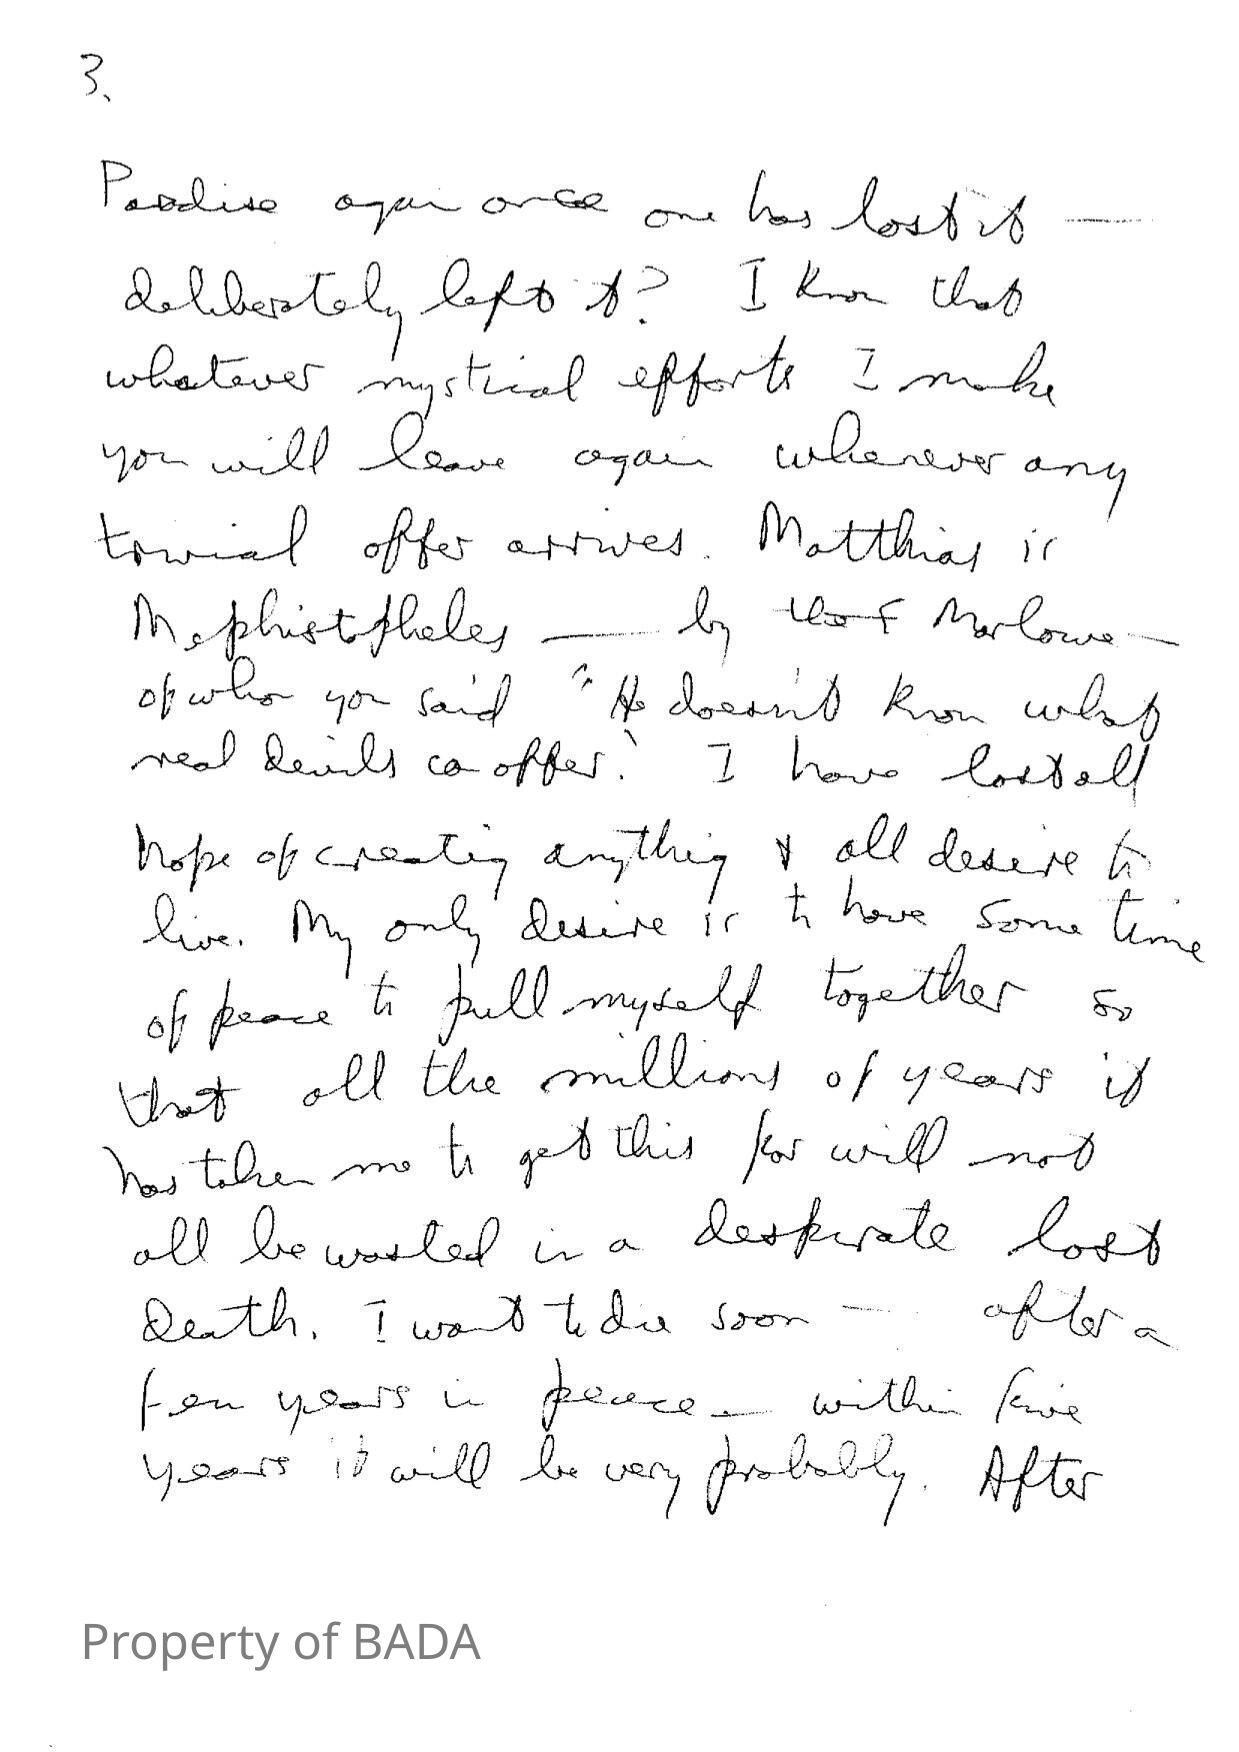 3.
Paradise again once one has lost it —
deliberately left it? I know that
whatever mystical efforts I make
you will leave again whenever any
trivial offer arrives. Matthias is
Mephistopheles — by Marlowe —
of whom you said "He doesn't know what
real devils can offer." I have lost all
hope of creating anything & all desire to
live. My only desire is to have some time
of peace to pull myself together so
that all the millions of years it
has taken me to get this far will not
all be wasted in a desperate lost
death. I want to die soon — after a
few years in peace — within five
years it will be very probably. After
Property of BADA